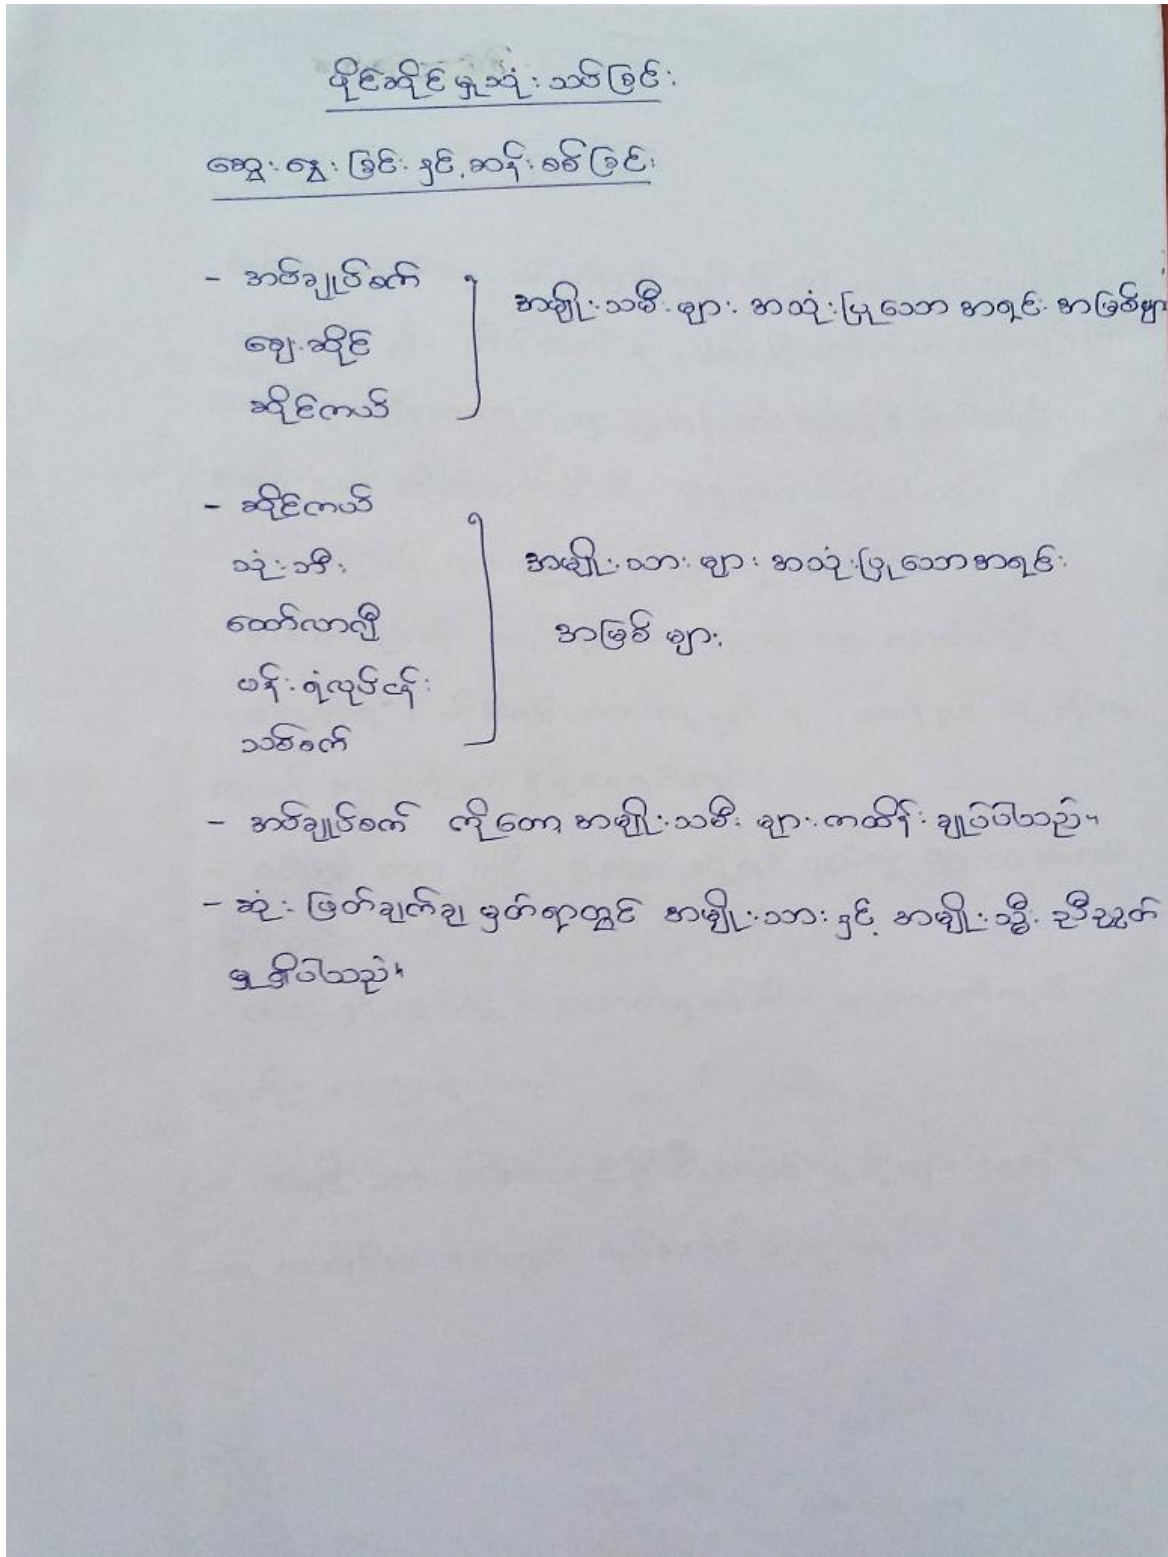 ပိုင်ဆိုင်မှုသုံးသပ်ခြင်း
ဆွေးနွေးခြင်းနှင့်ဆန်းစစ်ခြင်း
- အပ်ချုပ်စက်
ဈေးဆိုင်
ဆိုင်ကယ်
အမျိုးသမီးများ အသုံးပြုသော အရင်းအမြစ်များ
- ဆိုင်ကယ်
သုံးဘီး
ထော်လာဂျီ
ပန်းရံလုပ်ငန်း
သစ်စက်
အမျိုးသားများ အသုံးပြုသောအရင်း
အမြစ်များ
- အပ်ချုပ်စက် ကိုတော့ အမျိုးသမီးများကထိန်းချုပ်ပါသည်။
- ဆုံးဖြတ်ချက်ချမှတ်ရာတွင် အမျိုးသားနှင့် အမျိုးသ္မီး ညီညွတ်
မျှရှိပါသည်။